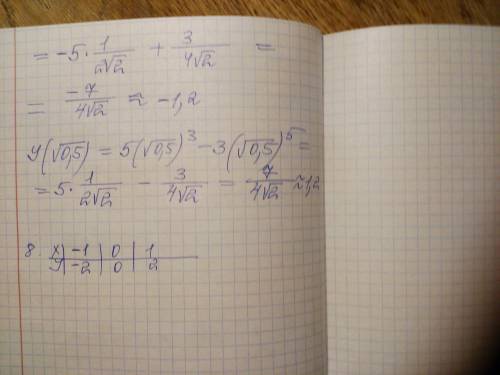 = -5 · 1/2√2 + 3/4√2 =
= -7/4√2 ≈ -1,2
y(√0,5) = 5(√0,5)³ - 3(√0,5)⁵ =
= 5 · 1/2√2 - 3/4√2 = 7/4√2 ≈ 1,2
8. x | -1 | 0 | 1
y | -2 | 0 | 2